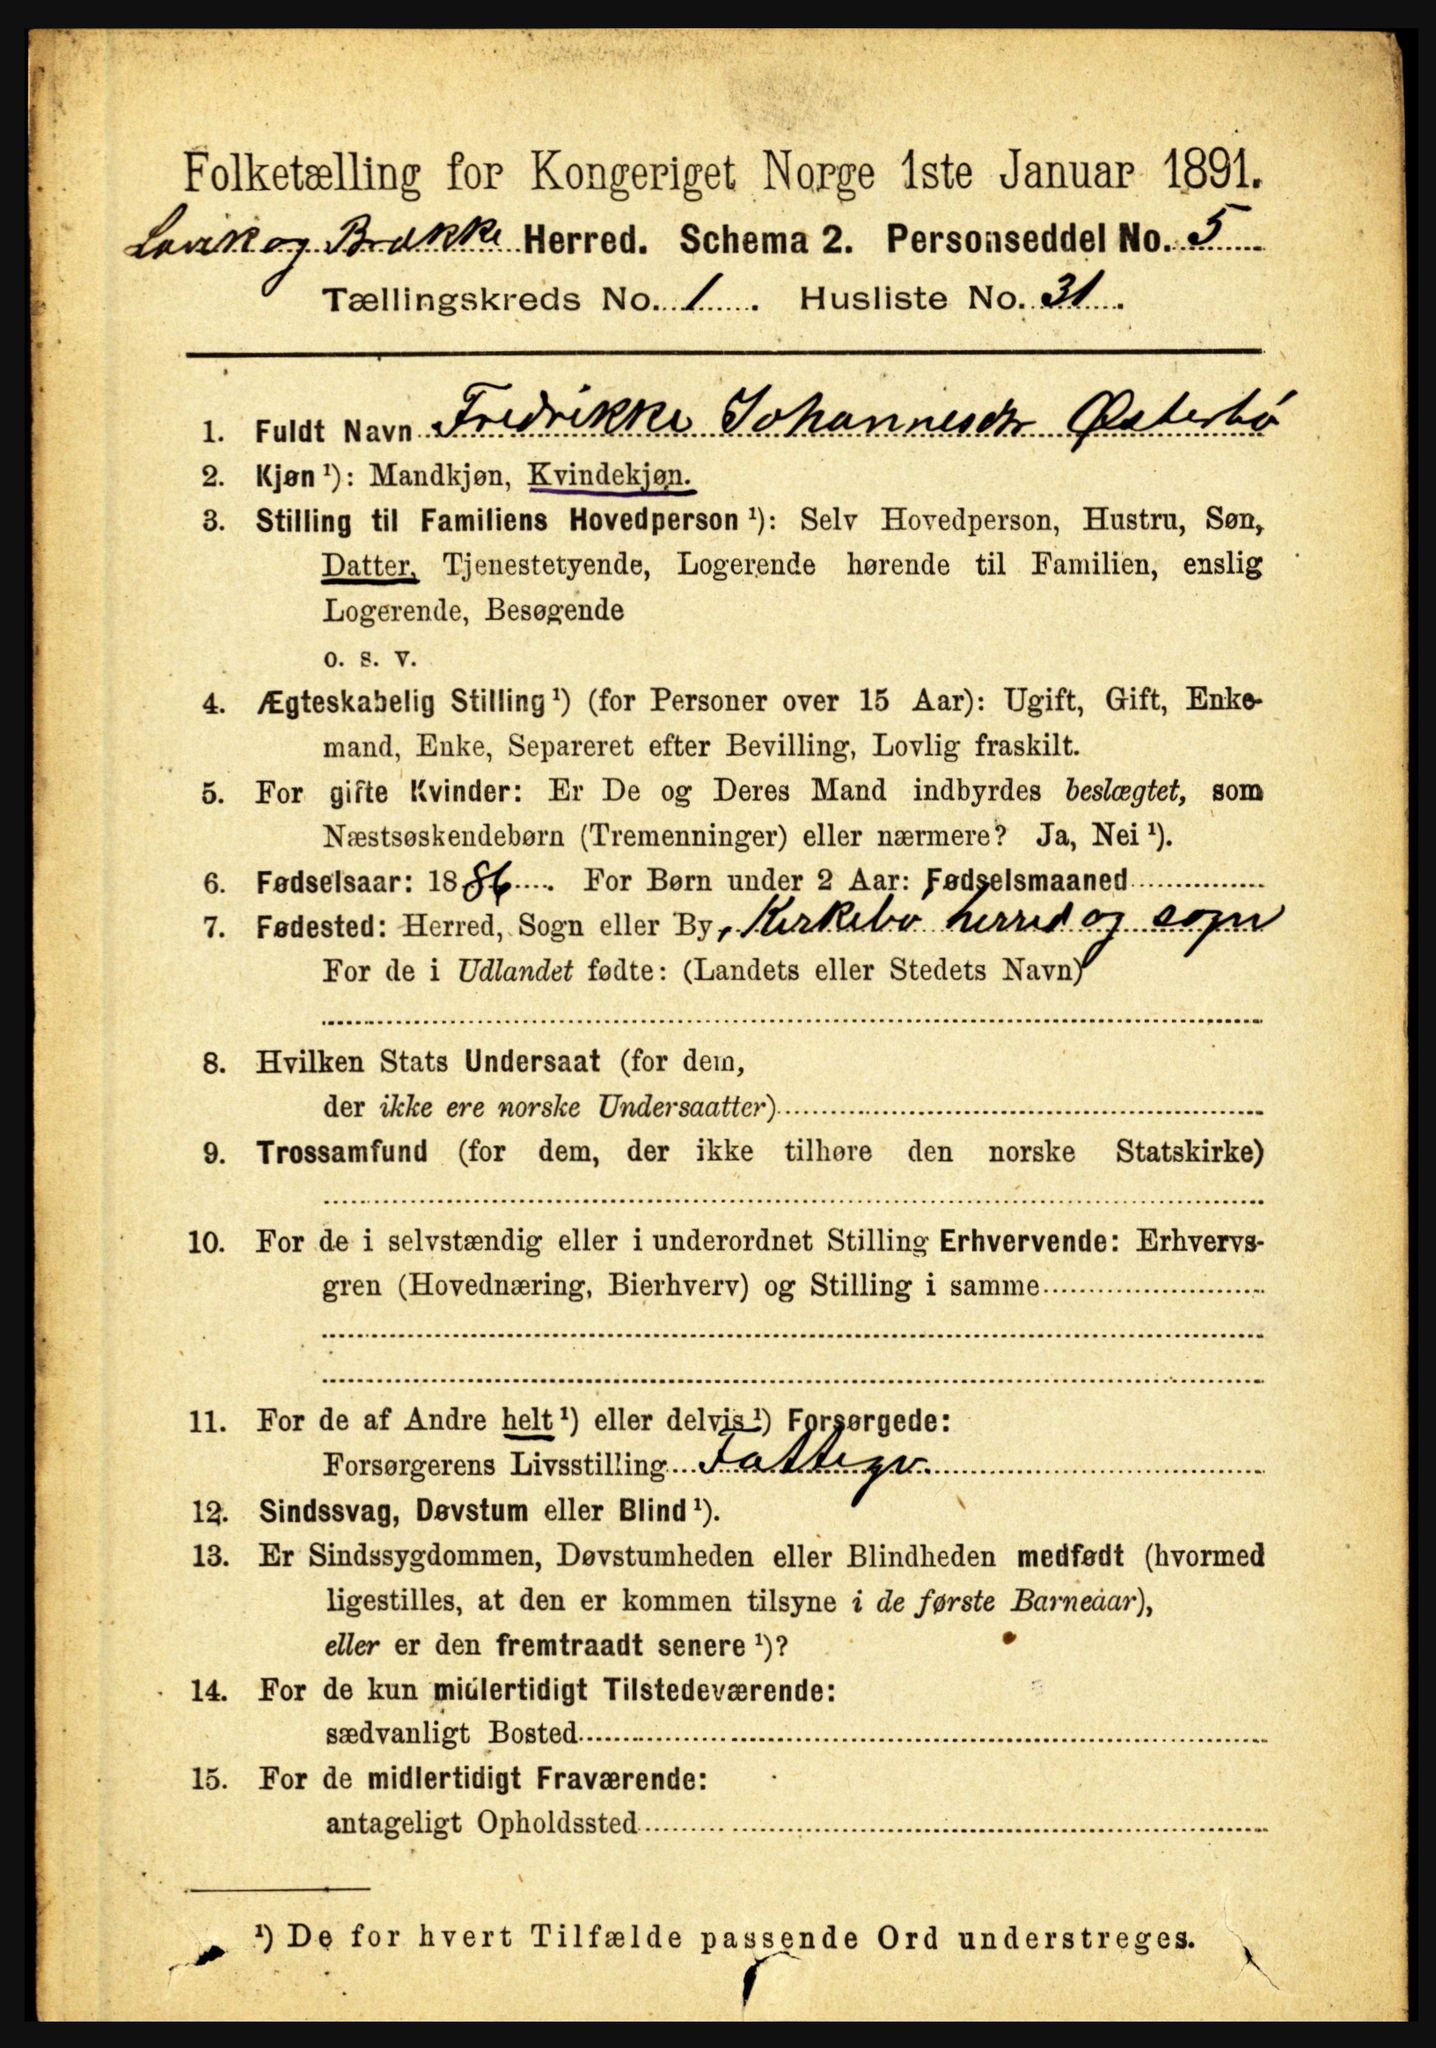 Folketælling for Kongeriget Norge 1ste Januar 1891.
Lavik og Brække Herred. Schema 2. Personseddel No. 5
Tællingskreds No. 1. Husliste No. 31.
1. Fuldt Navn Fredrikke Johannesdtr Østerbö
2. Kjøn ¹): Mandkjøn, Kvindekjøn.
3. Stilling til Familiens Hovedperson ¹): Selv Hovedperson, Hustru, Søn,
Datter, Tjenestetyende, Logerende hørende til Familien, enslig
Logerende, Besøgende
o. s. v.
4. Ægteskabelig Stilling ¹) (for Personer over 15 Aar): Ugift, Gift, Enke-
mand, Enke, Separeret efter Bevilling, Lovlig fraskilt.
5. For gifte Kvinder: Er De og Deres Mand indbyrdes beslægtet, som
Næstsøskendebørn (Tremenninger) eller nærmere? Ja, Nei ¹).
6. Fødselsaar: 1886. For Børn under 2 Aar: Fødselsmaaned
7. Fødested: Herred, Sogn eller By, Kirkebö herred og sogn
For de i Udlandet fødte: (Landets eller Stedets Navn)
8. Hvilken Stats Undersaat (for dem,
der ikke ere norske Undersaatter)
9. Trossamfund (for dem, der ikke tilhøre den norske Statskirke)
10. For de i selvstændig eller i underordnet Stilling Erhvervende: Erhvervs-
gren (Hovednæring, Bierhverv) og Stilling i samme
11. For de af Andre helt ¹) eller delvis ¹) Forsørgede:
Forsørgerens Livsstilling Fattigv.
12. Sindssvag, Døvstum eller Blind ¹).
13. Er Sindssygdommen, Døvstumheden eller Blindheden medfødt (hvormed
ligestilles, at den er kommen tilsyne i de første Barneaar),
eller er den fremtraadt senere ¹)?
14. For de kun midlertidigt Tilstedeværende:
sædvanligt Bosted
15. For de midlertidigt Fraværende:
antageligt Opholdssted
¹) De for hvert Tilfælde passende Ord understreges.